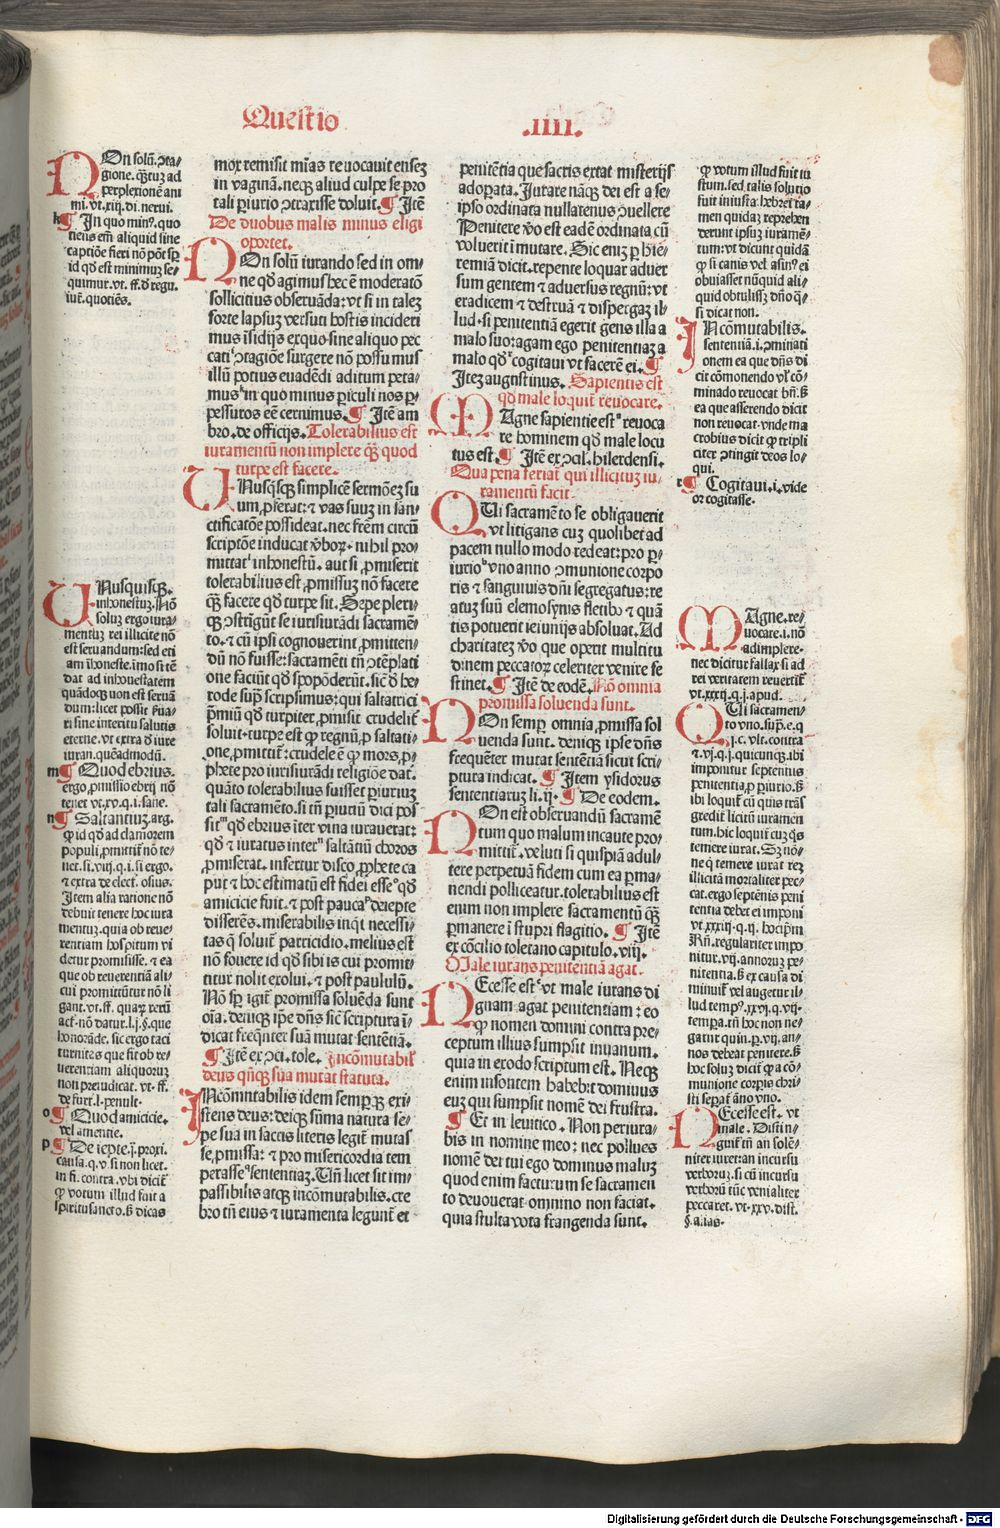 Questio .IIII.
NOn solũ. ɔta⸗
gione. q̃tuꝫ ad
perplexionẽ ani
mi. vt. xiij. di. nerui.
¶ In quo minꝰ. quo
tiens em̃ aliquid sine
captiõe fieri nõ põt sꝑ
id qď est minimuꝫ se⸗
quimur. vt. ff. ď regu.
iur̃. quotiẽs.
VNusquisqꝫ.
inhonestuꝫ. Nõ
soluꝫ ergo iura⸗
mentuꝫ rei illicite nõ
est seruandum: sed eti
am ĩhoneste. ĩmo si tẽ
dat ad inhonestatem
quãdoqꝫ non est seruã
dum: licet possit ẜua⸗
ri sine interitu salutis
eterne. vt extra ď iure
iuran. quẽadmodũ.
m ¶ Quod ebrius.
ergo ꝓmissio ebrij nõ
tenet vt. xv. q. i. sane.
n ¶ Saltantiuꝫ. arg.
ꝙ id qď ad clamorem
populi ꝓmittit̃ nõ te⸗
net. si. viij. q. i. si ergo.
⁊ extra de elect. osius.
Item alia ratione nõ
debuit tenere hoc iura
mentuꝫ. quia ob reue⸗
rentiam hospitum vi
detur promisisse. ⁊ ea
que ob reuerentiã ali⸗
cui promittũtur nõ li
gant. vt. ff. quaꝝ rerũ
act̃. nõ datur. l. j. §. que
honorãde. sic ergo taci
turnitas que fit ob re⸗
uerentiam aliquoruꝫ
non preiudicat. vt. ff.
de furt. l. penult.
o ¶ Quod amicicie.
vel amentie.
p ¶ De iepte. j. proxi.
causa. q. v. si non licet.
in fi. contra. vbi dicit̃
ꝙ votum illud fuit a
spiritusancto. ẞ dicas
mox remisit mĩas reuocauit ensez
in vaginã. neqꝫ aliud culpe se pro
tali ꝑiurio ɔtraxisse doluit. ¶ Itẽ
De duobus malis minus eligi
oportet.
NOn solũ iurando sed in om⸗
ne qď agimus hec ẽ moderatõ
sollicitius obseruãda: vt si in talez
forte lapsuꝫ versuti hostis incideri
mus ĩsidijs ex quo sine aliquo pec
cati ɔtagiõe surgere nõ possumus
illũ potius euadẽdi aditum peta⸗
mus in quo minus ꝑiculi nos ꝑ⸗
pessutos eẽ cernimus. ¶ Itẽ am
bro. de officijs. Tolerabilius est
iuramentũ non implere q̃ꝫ quod
turpe est facere.
VNusq̃sqꝫ simplicẽ sermõeꝫ su
um ꝓferat: ⁊ vas suuꝫ in san⸗
ctificatõe possideat. nec fr̃em circũ
scriptõe inducat v̾boꝝ. nihil pro⸗
mittat inhonestũ. aut si ꝓmiserit
tolerabilius est ꝓmissuꝫ nõ facere
q̃ꝫ facere qď turpe sit. Sepe pleri⸗
qꝫ ɔstrigũt se iurisiurãdi sacramẽ⸗
to. ⁊ cũ ip̃i cognouerint ꝓmitten⸗
dũ nõ fuisse: sacramẽti tñ ɔtẽplati
one faciũt qď spopõderũt. sic̃ ď he⸗
rode sup̃ scripsimus: qui saltatrici
p̃miũ qď turpiter ꝓmisit crudelit̃
soluit. turpe est ꝙ regnũ ꝑ saltati⸗
one ꝓmittit̃: crudele ẽ ꝙ mors ꝓ⸗
phete pro iurisiurãdi religiõe dat̃.
quãto tolerabilius fuisset ꝑiuriuꝫ
tali sacramẽto. si tñ ꝑiuriũ dici pos
sit qď ebrius ĩter vina iurauerat:
qď ⁊ iuratus inter saltãtiũ choros
ꝓmiserat. infertur disco ꝓphete ca
put ⁊ hoc estimatũ est fidei esse qď
amicicie fuit. ⁊ post pauca deiepte
disserẽs. miserabilis inq̃t necessi⸗
tas q̃ soluit̃ parricidio. melius est
nõ fouere id qď sibi is cui promit⸗
titur nolit exolui. ⁊ post paululũ.
Nõ sꝑ igit̃ promissa soluẽda sunt
oĩa. deniqꝫ ip̃e dñs sic̃ scriptura ĩ⸗
dicat freq̃nter suã mutat sentẽtiã.
¶ Itẽ ex ɔci. tole. Incõmutabil̃
deus q̃nqꝫ sua mutat statuta.
INcõmutabilis idem semꝑqꝫ exi⸗
stens deus: deiqꝫ sũma natura se⸗
pe sua in sacris literis legit̃ mutas
se ꝓmissa: ⁊ pro misericordia tem
perasse sententiaꝫ. Uñ licet sit im⸗
passibilis atqꝫ incõmutabilis. cre
bro tñ eius ⁊ iuramenta legunt̃ et
penitẽtia que sacris extat misterijs
adoꝑata. Iurare nãqꝫ dei est a se⸗
ipso ordinata nullatenus ɔuellere
Penitere v̾o est eadẽ ordinata cũ
voluerit ĩmutare. Sic eniꝫ ꝑ hie⸗
remiã dicit. repente loquar aduer
sum gentem ⁊ aduersus regnũ: vt
eradicem ⁊ destruã ⁊ dispergaꝫ il⸗
lud. si penitentiã egerit gens illa a
malo suo: agam ego penitentiaꝫ a
malo qď cogitaui vt facerẽ ei. ¶
Iteꝫ augustinus. Sapientis est
qď male loquit̃ reuocare.
MAgne sapientie est reuoca
re hominem qď male locu
tus est. ¶ Itẽ ex ɔcil. hilerdensi.
Qua pena feriat̃ qui illicituꝫ iu⸗
ramentũ facit.
QUi sacramẽto se obligauerit
vt litigans cuꝫ quolibet ad
pacem nullo modo redeat: pro ꝑ⸗
iurio vno anno ɔmunione corpo
ris ⁊ sanguinis dñi segregatus: re
atuꝫ suũ elemosynis fletibꝰ ⁊ quã
tis potuerit ieiunijs absoluat. Ad
charitateꝫ v̾o que operit multitu
dinem peccatoꝝ celeriter venire fe
stinet. ¶ Itẽ de eodẽ. Nõ omnia
promissa soluenda sunt.
NOn semꝑ omnia ꝓmissa sol
uenda sunt. deniqꝫ ipse dñs
freq̃uẽter mutat sentẽtiã sicut scri⸗
ptura indicat. ¶ Item ysidorus
sententiaruꝫ li. ij. ¶ De eodem.
NOn est obseruandũ sacramẽ
tum quo malum incaute pro⸗
mittit̃. veluti si quispiã adul⸗
tere perpetuã fidem cum ea ꝑma⸗
nendi polliceatur. tolerabilius est
enim non implere sacramentũ q̃ꝫ
ꝑmanere ĩ stupri flagitio. ¶ Itẽ
ex cõcilio toletano capitulo. viij.
Male iurans penitentiã agat.
NEcesse est vt male iurans di
gnam agat penitentiam: eo
ꝙ nomen domini contra pre⸗
ceptum illius sumpsit inuanum.
quia in exodo scriptum est. Neqꝫ
enim insontem habebit dominus
euꝫ qui sumpsit nomẽ dei frustra.
¶ Et in leuitico. Non periura⸗
bis in nomine meo: nec pollues
nomẽ dei tui ego dominus maluꝫ
quod enim facturum se sacramen
to deuouerat omnino non faciat.
quia stulta vota frangenda sunt.
ꝙ votum illud fuit iu
stum. sed talis solutio
fuit iniusta: hebrei ta⸗
men quidaꝫ reprehen
derunt ipsuꝫ iuramẽ⸗
tum: vt dicunt quidã
ꝙ si canis vel asinꝰ ei
obuiasset nũquid ali⸗
quid obtulissꝫ dño q̃⸗
si dicat non.
INcõmutabilis.
sententiã. i. ɔminati
onem ea que dñs di
cit cõmonendo vl̾ cõ⸗
minado reuocat bñ. ẞ
ea que asserendo dicit
non reuocat. vnde ma
crobius dicit ꝙ tripli
citer ɔtingit deos lo⸗
qui.
r ¶ Cogitaui. i. vide
or cogitasse.
MAgne. re⸗
uocare. i. nõ
adimplere.
nec dicitur fallax si ad
rei veritatem reuertit̃
vt. xxij. q. j. apud.
QUi sacramen⸗
to vno. sup̃. e. q
j. c. vlt. contra
⁊. vj. q. j. quicunqꝫ. ibi
imponitur septenius
penitentia ꝓ ꝑiurio. ẞ
ibi loquit̃ cũ quis trãs
gredit̃ licitũ iuramen
tum. hic loquit̃ cuꝫ q̃s
temere iurat. Sꝫ nõ⸗
ne q̃ temere iurat reꝫ
illicitã mortaliter pec⸗
cat. ergo septẽnis peni
tentia debet ei imponi
vt. xxiij. q. ij. hoc ip̃m
Rñ. regulariter impo
nitur. vij. annoruꝫ pe⸗
nitentia. ẞ ex causa di
minuit̃ vel augetur il⸗
lud tempꝰ. xxvj. q. vij.
tempora. tñ hoc non ne⸗
gatur quin. ꝑ. vij. an⸗
nos debeat penitere. ẞ
hoc soluꝫ dicit̃ ꝙ a cõ⸗
munione corꝑis chri⸗
sti separat̃ ãno vno.
NEcesse est. vt
male. Distin⸗
guit̃ tñ an solẽ⸗
niter iuret: an incursu
verboruꝫ. si cũ incursu
verborũ tũc venialiter
peccaret. vt. xxv. dist.
§. alias.
Digitalisierung gefördert durch die Deutsche Forschungsgemeinschaft - DFG